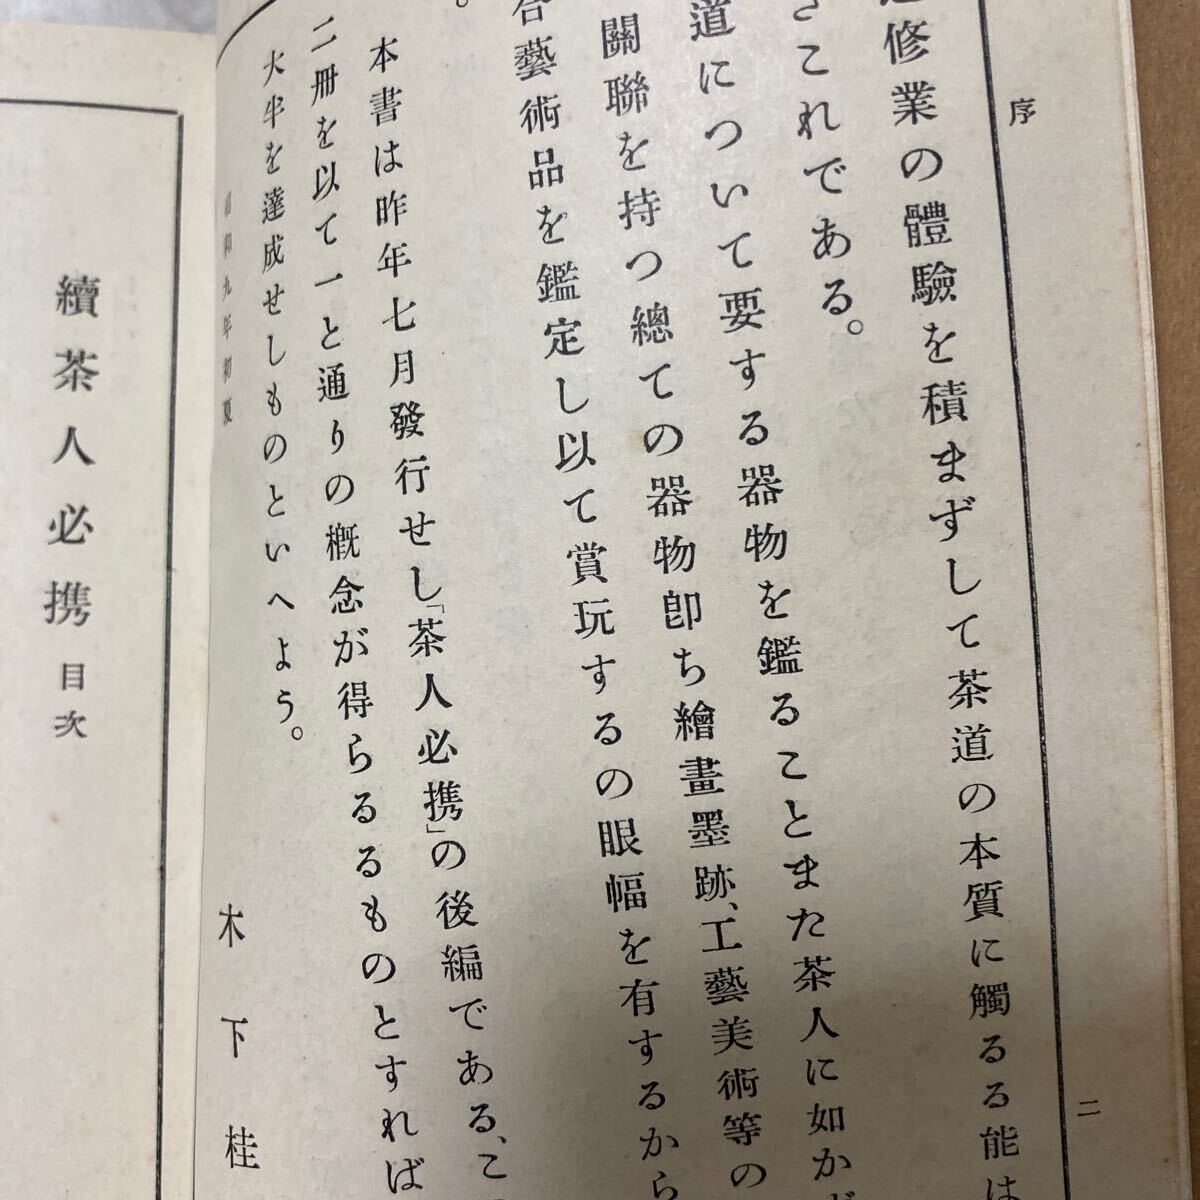 序
修業の體驗を積まずして茶道の本質に觸るる能は
これである。
道について要する器物を鑑ることまた茶人に如かざ
關聯を持つ總ての器物卽ち繪畫墨跡、工藝美術等の
合藝術品を鑑定し以て賞玩するの眼幅を有するから
。
本書は昨年七月發行せし「茶人必携」の後編である、こ
二冊を以て一と通りの槪念が得らるるものとすれば
大半を達成せしものといへよう。
昭和九年初夏
木下桂
二
續茶人必携 目次